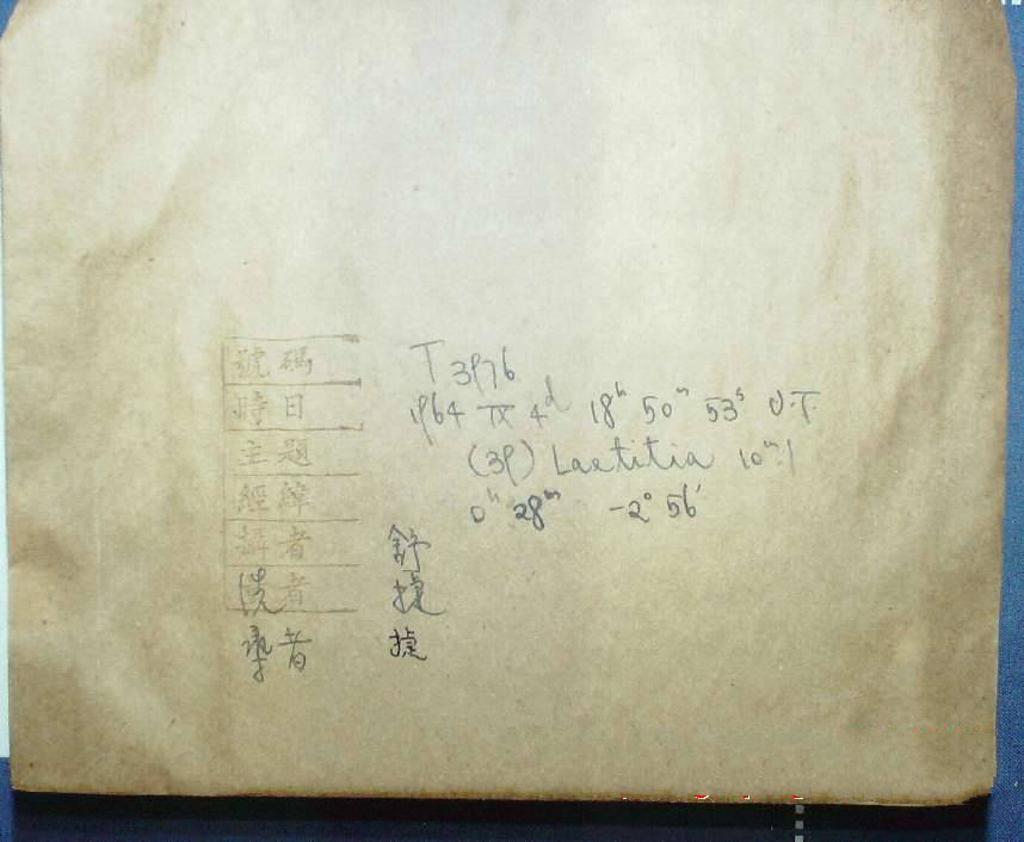 號碼 T 3976
時日 1964 IX 4ᵈ 18ʰ 50ᵐ 53ˢ U.T.
主題 (39) Laetitia 10ᵐ.1
經緯 0ʰ 28ᵐ -2° 56′
攝者 舒
洗者 捷
者 捷